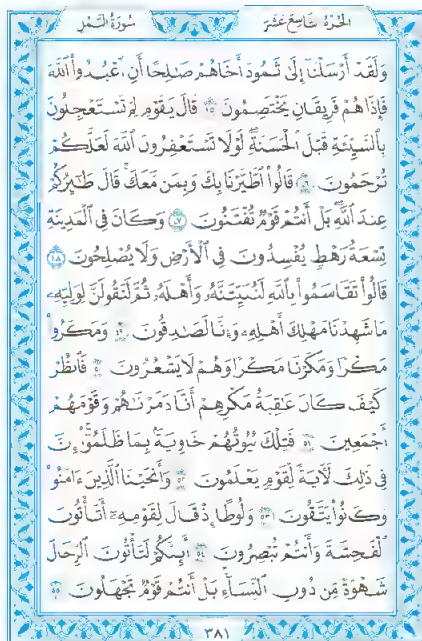 الجزء التاسع عشر
سورة النمل
وَلَقَدْ أَرْسَلْنَا إِلَىٰ ثَمُودَ أَخَاهُمْ صَٰلِحًا أَنِ ٱعْبُدُوا۟ ٱللَّهَ
فَإِذَا هُمْ فَرِيقَانِ يَخْتَصِمُونَ ٤٥ قَالَ يَٰقَوْمِ لِمَ تَسْتَعْجِلُونَ
بِٱلسَّيِّئَةِ قَبْلَ ٱلْحَسَنَةِ لَوْلَا تَسْتَغْفِرُونَ ٱللَّهَ لَعَلَّكُمْ
تُرْحَمُونَ ٤٦ قَالُوا۟ ٱطَّيَّرْنَا بِكَ وَبِمَن مَّعَكَ قَالَ طَٰٓئِرُكُمْ
عِندَ ٱللَّهِ بَلْ أَنتُمْ قَوْمٌ تُفْتَنُونَ ٤٧ وَكَانَ فِى ٱلْمَدِينَةِ
تِسْعَةُ رَهْطٍ يُفْسِدُونَ فِى ٱلْأَرْضِ وَلَا يُصْلِحُونَ ٤٨
قَالُوا۟ تَقَاسَمُوا۟ بِٱللَّهِ لَنُبَيِّتَنَّهُۥ وَأَهْلَهُۥ ثُمَّ لَنَقُولَنَّ لِوَلِيِّهِۦ
مَا شَهِدْنَا مَهْلِكَ أَهْلِهِۦ وَإِنَّا لَصَٰدِقُونَ ٤٩ وَمَكَرُوا۟
مَكْرًا وَمَكَرْنَا مَكْرًا وَهُمْ لَا يَشْعُرُونَ ٥٠ فَٱنظُرْ
كَيْفَ كَانَ عَٰقِبَةُ مَكْرِهِمْ أَنَّا دَمَّرْنَٰهُمْ وَقَوْمَهُمْ
أَجْمَعِينَ ٥١ فَتِلْكَ بُيُوتُهُمْ خَاوِيَةًۢ بِمَا ظَلَمُوٓا۟ إِنَّ
فِى ذَٰلِكَ لَءَايَةً لِّقَوْمٍ يَعْلَمُونَ ٥٢ وَأَنجَيْنَا ٱلَّذِينَ ءَامَنُوا۟
وَكَانُوا۟ يَتَّقُونَ ٥٣ وَلُوطًا إِذْ قَالَ لِقَوْمِهِۦٓ أَتَأْتُونَ
ٱلْفَٰحِشَةَ وَأَنتُمْ تُبْصِرُونَ ٥٤ أَئِنَّكُمْ لَتَأْتُونَ ٱلرِّجَالَ
شَهْوَةً مِّن دُونِ ٱلنِّسَآءِ بَلْ أَنتُمْ قَوْمٌ تَجْهَلُونَ ٥٥
٣٨١